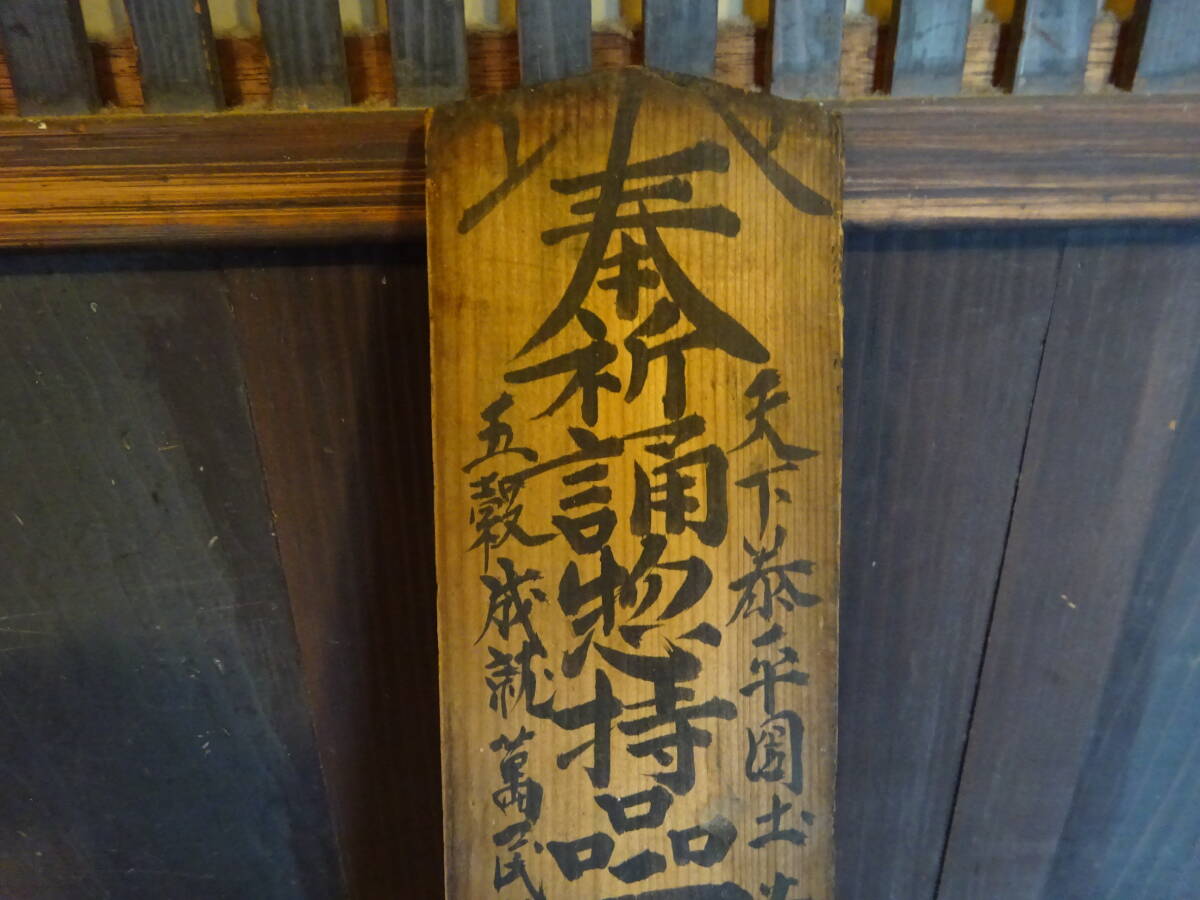 天下泰平國土
奉祈誦惣持品
五穀成就萬民